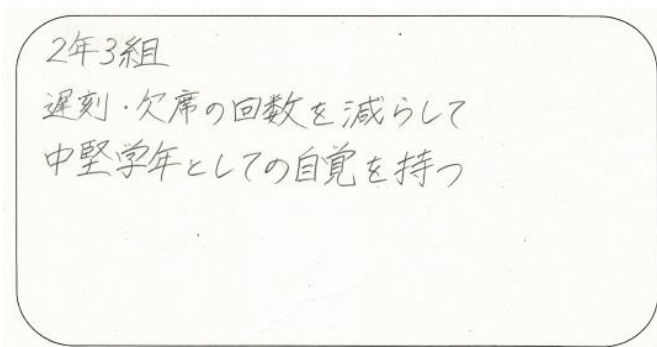 2年3組
遅刻・欠席の回数を減らして
中堅学年としての自覚を持つ